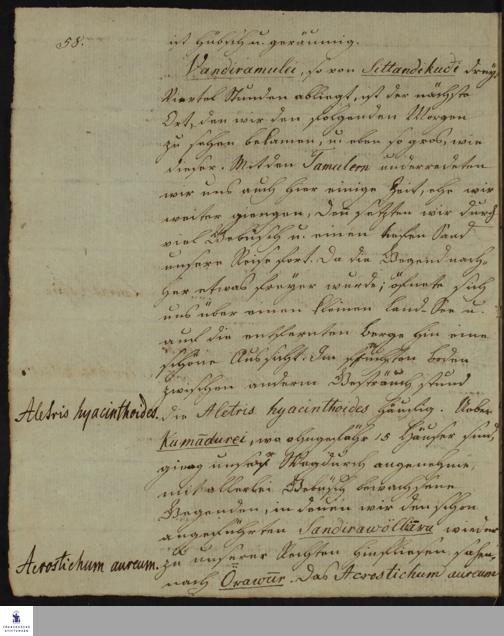 58.
ist hübsch u. geräumig.
Vandiramulei, so von Sittandikudi drey
Viertel Stunden abliegt, ist der nächste
Ort, den wir den folgenden Morgen
zu sehen bekamen, u. eben so gros, wie
dieser. Mit den Tamulern unterredeten
wir uns auch hier einige Zeit, ehe wir
weiter giengen, denn setzten wir durch
viel Gebüsch u. einen tiefen Sand
unsere Reise fort. Da die Gegend nach-
her etwas freyer wurde; öfnete sich
uns über einen kleinen Land-See u.
auf die entfernten Berge hin eine
schöne Aussicht. Im Boden
zwischen anderm Gesträuch stund
Aletris hyacinthoides.
die Aletris hyacinthoides häufig. Ueber
Kumādurei, wo ohngefähr 15 Häuser sind,
gieng unser Weg durch angenehme,
mit allerlei Gebüsch bewachsene
Gegenden, in denen wir den schon
angeführten Sandirawöikāru wieder
Acrostichum aureum.
zu unserer Rechten hinfliesen sahen,
nach Örawur. Das Acrostichum aureum
FRANCKESCHE STIFTUNGEN